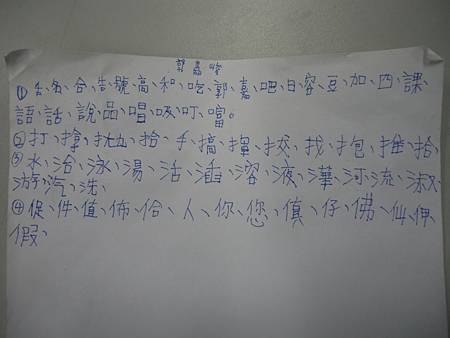 郭嘉
①舌、名、合、告、號、高、和、吃、郭、嘉、吧、日、容、豆、加、四、課、
語、話、說、品、唱、吸、叮、噹。
②打、拿、拋、拾、手、搞、揮、按、找、抱、挫、拾、
③水、治、泳、湯、活、溫、溶、液、漢、河、流、淑、
游、汽、洗、
④促、件、值、佈、佮、人、你、您、值、仔、佛、仙、伸、
假、